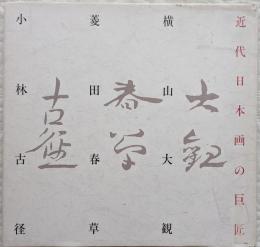 近代日本画の巨匠
横山大観
大観
菱田春草
春草
小林古径
古径